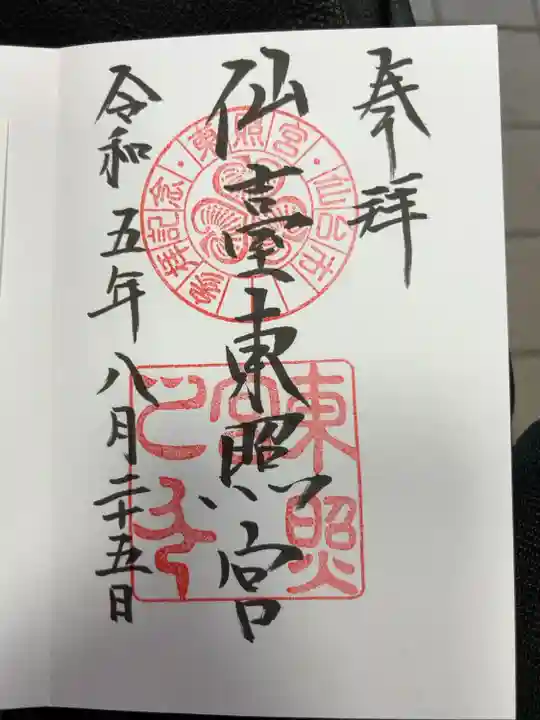 奉拝
仙臺東照宮
令和五年八月二十五日
東照宮・仙台市
参拝記念
東照
宮
之印